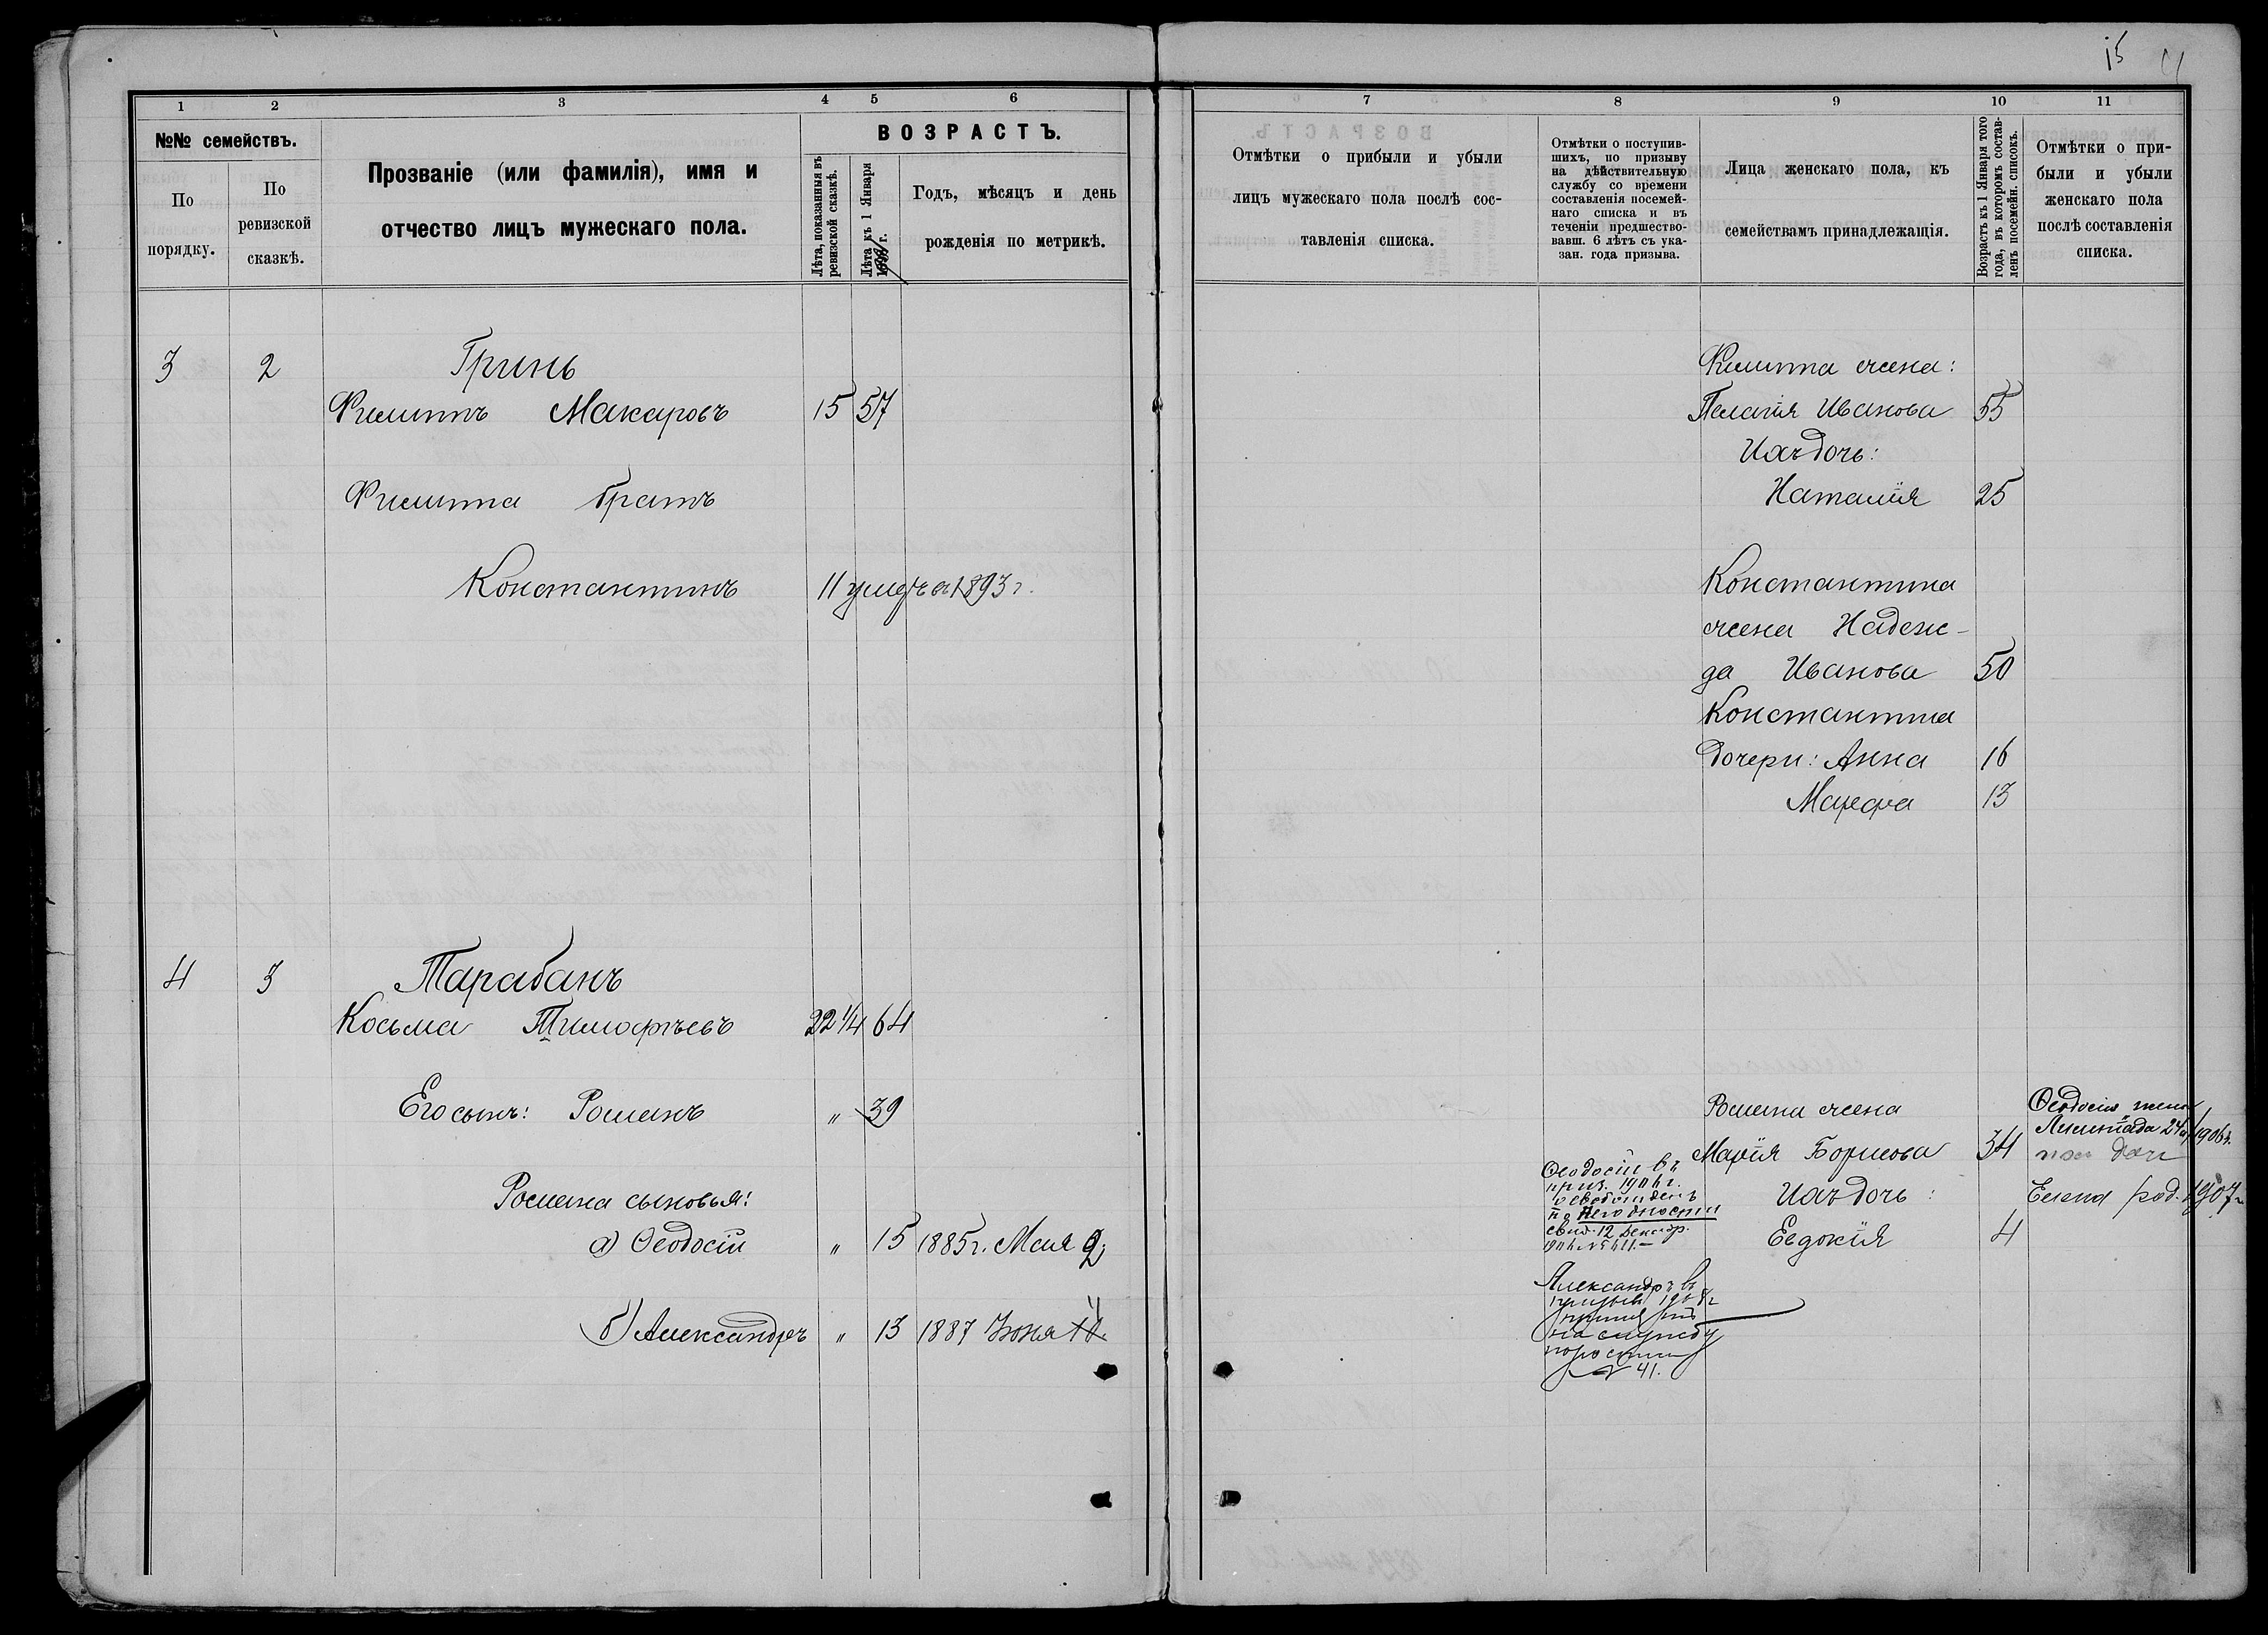 15
1 2 3 4 5 6
№№ семействъ.
По порядку.
По ревизской сказкѣ.
Прозваніе (или фамилія), имя и
отчество лицъ мужескаго пола.
ВОЗРАСТЪ.
Лѣта, показанныя въ
ревизской сказкѣ.
Лѣта къ 1 Января
г.
Годъ, мѣсяцъ и день
рожденія по метрикѣ.
3 2 Гринь
Филиппъ Макаровъ 15 57
Филиппа братъ
Константинъ 11 умеръ въ 1893 г.
4 3 Тарабанъ
Косьма Тимофѣевъ 22 1/4 64
Его сынъ: Романъ " 39
Романа сыновья:
а) Ѳеодосій " 15 1885 г. Мая 9
б) Александръ " 13 1887 Іюня 11
7 8 9 10 11
Отмѣтки о прибыли и убыли
лицъ мужескаго пола послѣ сос-
тавленія списка.
Отмѣтки о поступив-
шихъ, по призыву
на дѣйствительную
службу со времени
составленія посемей-
наго списка и въ
теченіи предшество-
вавш. 6 лѣтъ съ ука-
зан. года призыва.
Лица женскаго пола, къ
семействамъ принадлежащія.
Возрастъ къ 1 Января того
года, въ которомъ состав-
ленъ посемейн. списокъ.
Отмѣтки о при-
были и убыли
женскаго пола
послѣ составленія
списка.
Филиппа жена:
Пелагія Иванова 55
Ихъ дочь:
Наталія 25
Константина
жена Надеж-
да Иванова 50
Константина
дочери: Анна 16
Марфа 13
Романа жена
Марія Борисова 34
Ихъ дочь:
Евдокія 4
Ѳеодосій въ
приз. 1906 г.
освобожденъ
по негодности
свид. 12 Декабр.
Александръ въ
призыв 1908 г
принятъ
на службу
№ 41.
Ѳеодосія жена
Лимпіада 24 л. 1906 г.
ихъ доч
Елена род. 1907 г